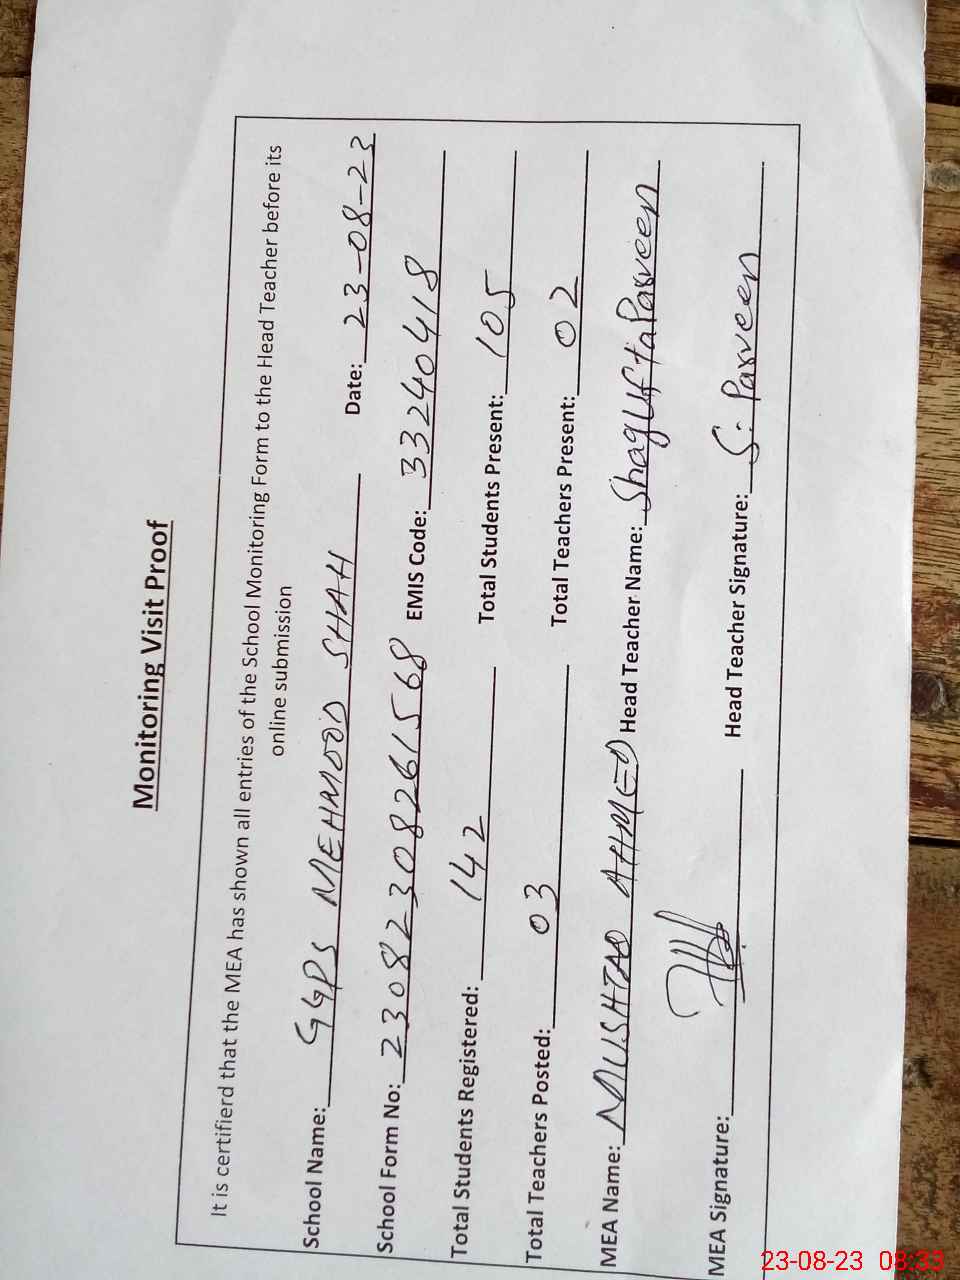 Monitoring Visit Proof
It is certifierd that the MEA has shown all entries of the School Monitoring Form to the Head Teacher before its
online submission
School Name: GGPS MEHMOOD SHAH Date: 23-08-23
School Form No: 23082308261568 EMIS Code: 33240418
Total Students Registered: 142 Total Students Present: 105
Total Teachers Posted: 03 Total Teachers Present: 02
MEA Name: MUSHTAQ AHMED Head Teacher Name: Shagufta Parveen
MEA Signature: Head Teacher Signature: S. Parveen
23-08-23 08:33